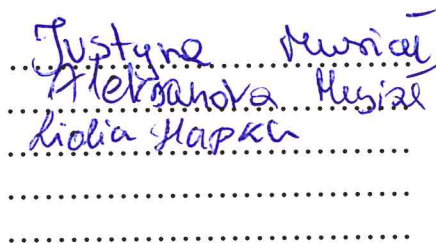 Justyna Musiał
Aleksandra Musiał
Lidia Hapka